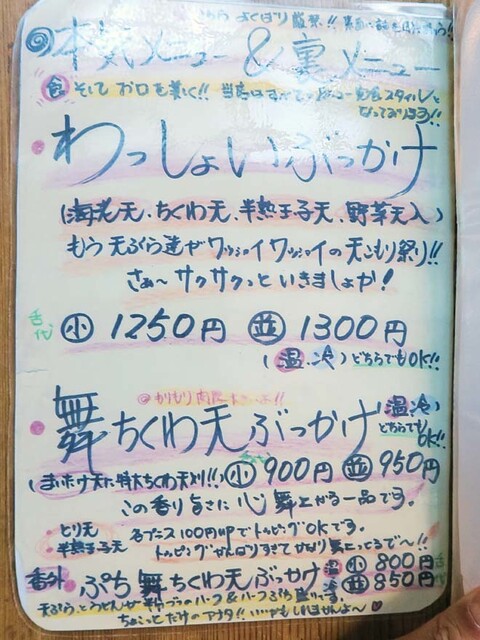 本気メニュー&裏メニュー
食 そして お口を
当店は
なっております!!
わっしょいぶっかけ
(海老天、ちくわ天、半熟玉子天、野菜天入)
もう天ぷら達がワッショイワッショイの天こもり祭り!!
さぁ〜サクサクっといきましょか!
小 1250円 並 1300円
(温、冷)どちらでもOK!!
舞ちくわ天ぶっかけ
(温、冷)どちらでもOK!!
(まいたけ天に特大ちくわ天刈!!) 小 900円 並 950円
この香り良さに心舞上がる一品です。
・とり天
・半熟玉子天
各プラス100円UPでトッピングOKです。
トッピングがんばりすぎてかなり舞上ってるで〜!!
番外 ぷち舞ちくわ天ぶっかけ 温 小 800円
冷 並 850円
ちょこっとだけのアナタ!!いいかもしれませんよ〜